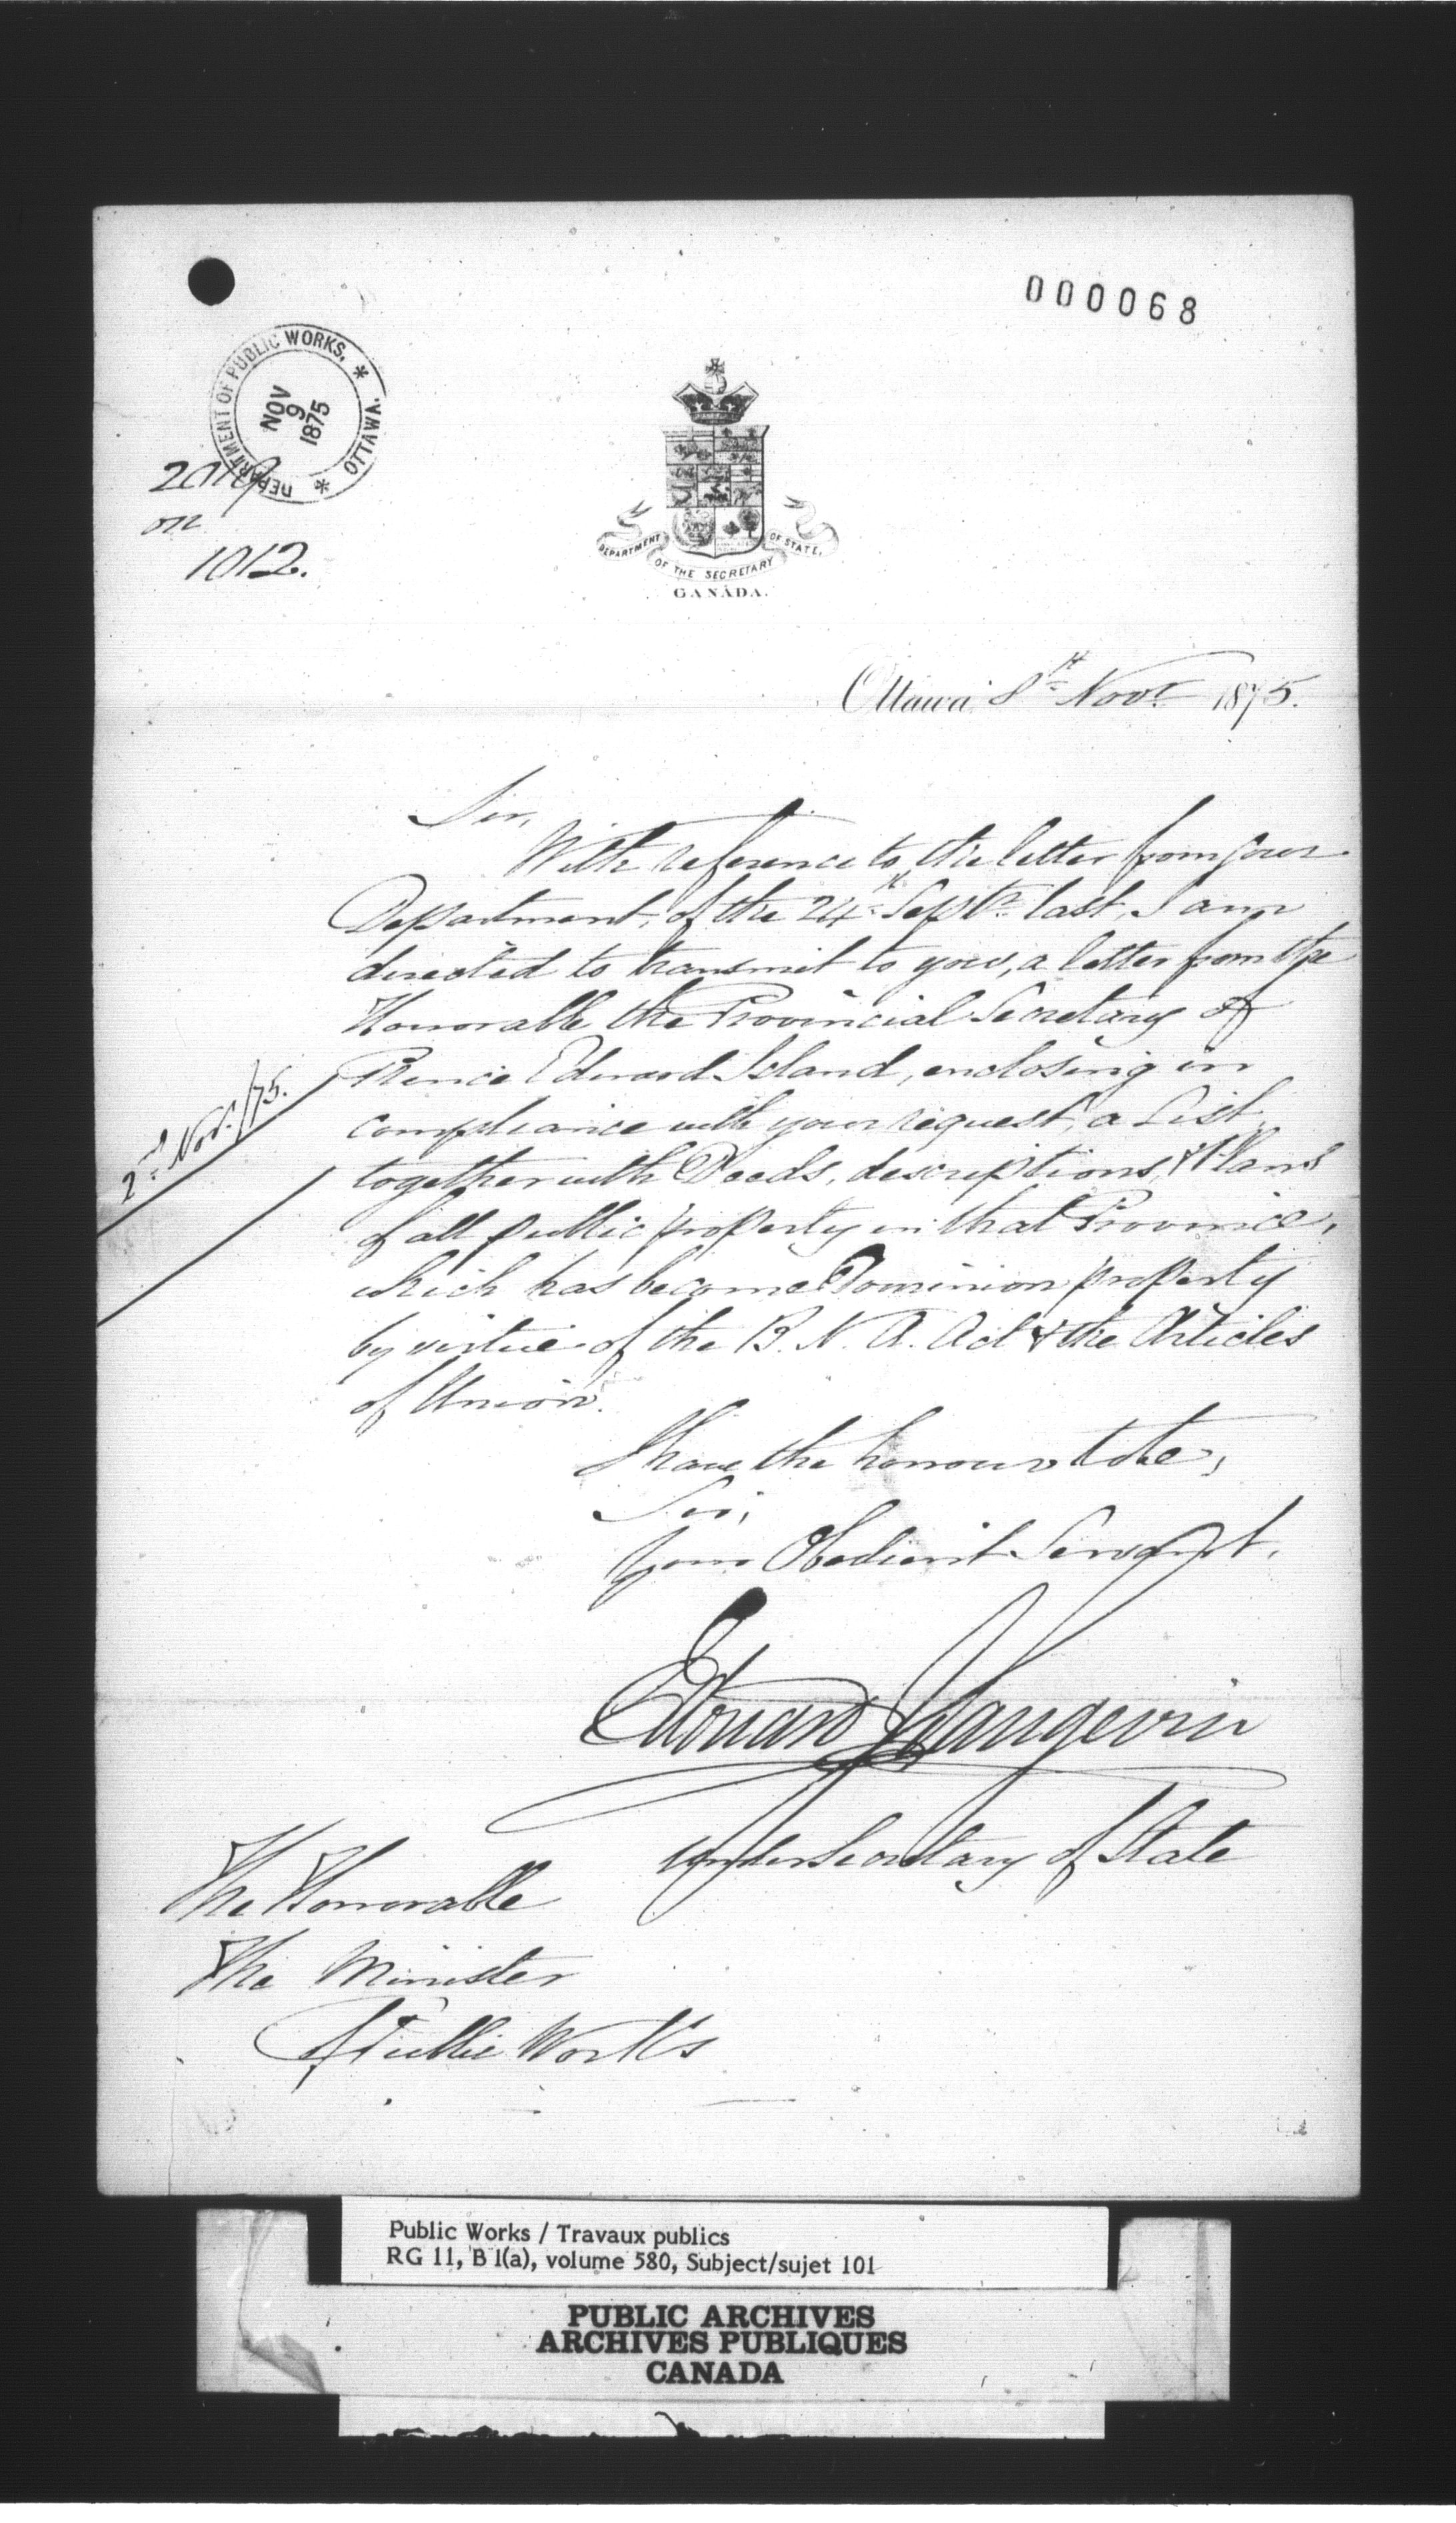 000068
DEPARTMENT OF PUBLIC WORKS, * OTTAWA. *
NOV
9
1875
on
1012.
DEPARTMENT OF THE SECRETARY OF STATE,
CANADA.
Ottawa 8th Novr 1875.
Sir,
With reference to the letter from your
Department, of the 24th Septr. last, I am
directed to transmit to you, a letter from the
Honorable the Provincial Secretary of
Prince Edward Island, enclosing in
2nd Nov. /75.
compliance with your request, a List,
together with Deeds, descriptions, & Plans
of all public property in that Province,
which has become Dominion property
by virtue of the B. N. A. Act & the Articles
of Union.
I have the honour to be,
Sir,
Your Obedient Servant,
Edouard J Langevin
Under Secretary of State
The Honorable
The Minister
of Public Works
Public Works / Travaux publics
RG 11, B 1(a), volume 580, Subject/sujet 101
PUBLIC ARCHIVES
ARCHIVES PUBLIQUES
CANADA